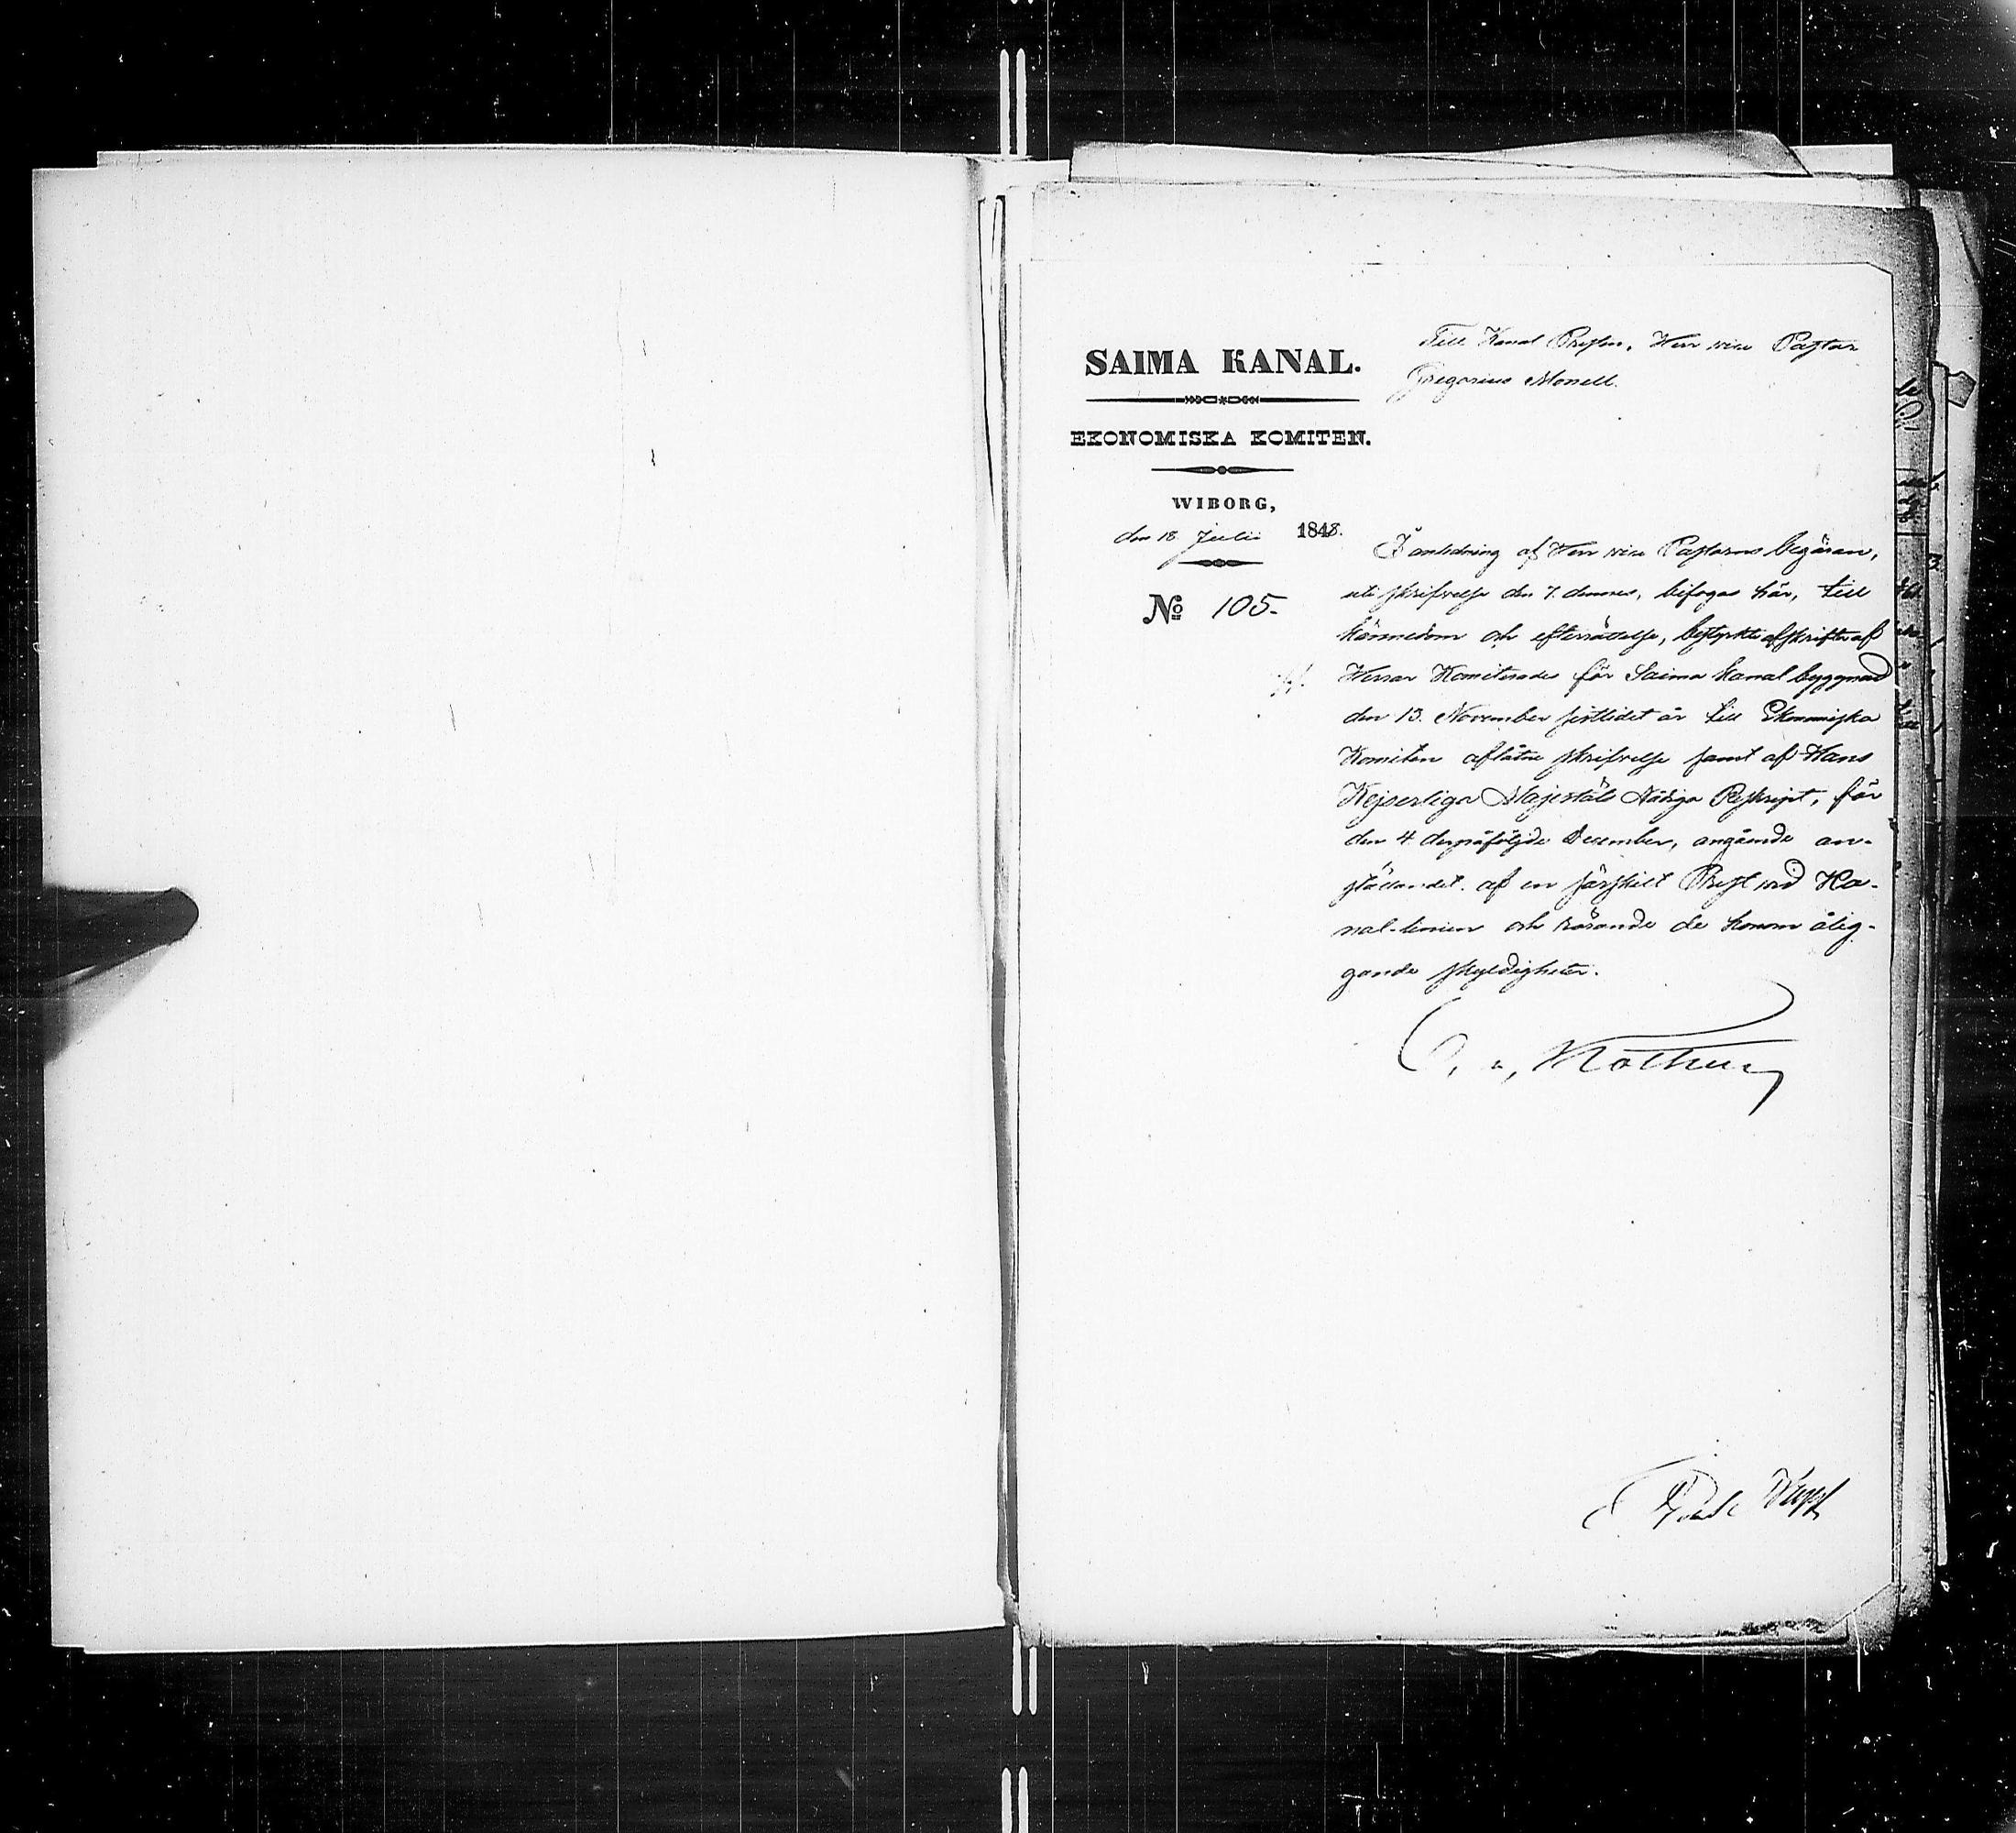 SAIMA KANAL.
EKONOMISKA KOMITEN.
WIBORG,
den 18 Julii 1848.
No 105.
Till Kanal Presten, Herr vice Pastor
Gregorius Monell.
I anledning af Herr vice Pastorns begäran,
uti skrifvelse den 7. dennes, bifogas här, till
kännedom och efterrättelse, bestyrkte afskrifter af
Herrar Komiterades för Saima Kanal byggnad
den 13. November sistlidet år till Ekonomiska
Komiten aflåtne skrifvelse samt af Hans
Kejserliga Majestäts Nådiga Reskript, för
den 4. derpåföljde December, angående an-
ställandet af en särskilt Prest vid Ka-
nal-linien och rörande de honom ålig-
gande skyldigheter.